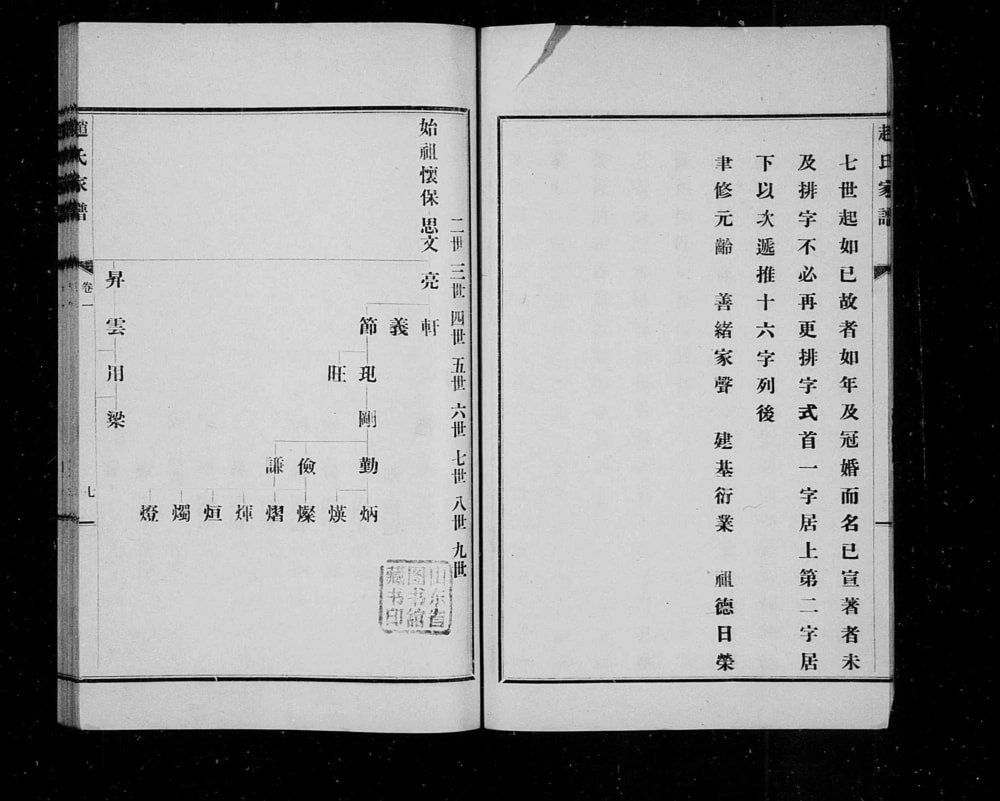 趙氏家譜
七世起如已故者如年及冠婚而名已宣著者未
及排字不必再更排字式首一字居上第二字居
下以次遞推十六字列後
聿修元齡 善緒家聲 建基衍業 祖德日榮
二世 三世 四世 五世 六世 七世 八世 九世
始祖懷保 思文 亮 軒
義
節 現 剛 勤 炳
旺 煐
儉 燦
謙 熠
煇
烜
燭
燈
昇 雲 用 梁
山东省
图书馆
藏书印
趙氏家譜 卷一 七